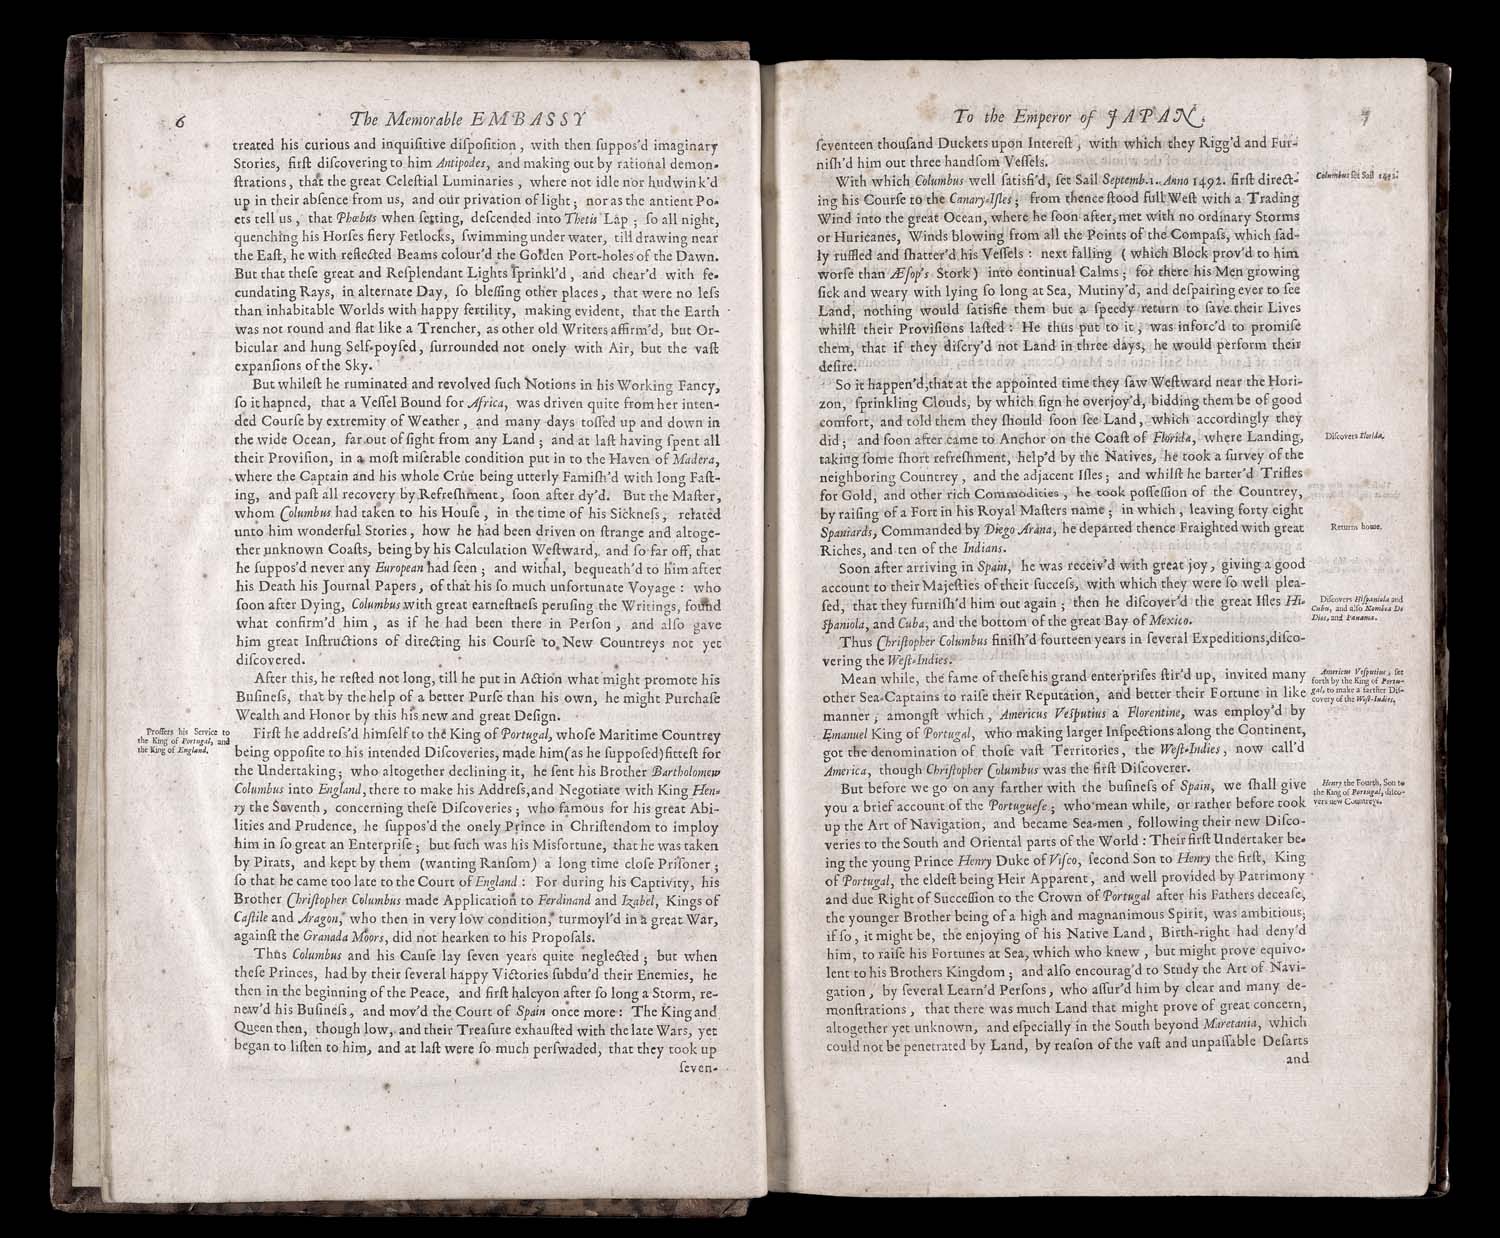 6
The Memorable EMBASSY
treated his curious and inquiſitive diſpoſition, with then ſuppos'd imaginary
Stories, firſt diſcovering to him Antipodes, and making out by rational demon-
ſtrations, that the great Celeſtial Luminaries, where not idle nor hudwink'd
up in their abſence from us, and our privation of light; nor as the antient Po-
ets tell us, that Phœbus when ſetting, deſcended into Thetis Lap; ſo all night,
quenching his Horſes fiery Fetlocks, ſwimming under water, till drawing near
the Eaſt, he with reflected Beams colour'd the Golden Port-holes of the Dawn.
But that theſe great and Reſplendant Lights ſprinkl'd, and chear'd with fe-
cundating Rays, in alternate Day, ſo bleſſing other places, that were no leſs
than inhabitable Worlds with happy fertility, making evident, that the Earth
was not round and flat like a Trencher, as other old Writers affirm'd, but Or-
bicular and hung Self-poyſed, ſurrounded not onely with Air, but the vaſt
expanſions of the Sky.
But whileſt he ruminated and revolved ſuch Notions in his Working Fancy,
ſo it hapned, that a Veſſel Bound for Africa, was driven quite from her inten-
ded Courſe by extremity of Weather, and many days toſſed up and down in
the wide Ocean, far out of ſight from any Land; and at laſt having ſpent all
their Proviſion, in a moſt miſerable condition put in to the Haven of Madera,
where the Captain and his whole Crüe being utterly Famiſh'd with long Faſt-
ing, and paſt all recovery by Refreſhment, ſoon after dy'd. But the Maſter,
whom Columbus had taken to his Houſe, in the time of his Sickneſs, related
unto him wonderful Stories, how he had been driven on ſtrange and altoge-
ther unknown Coaſts, being by his Calculation Weſtward, and ſo far off, that
he ſuppos'd never any European had ſeen; and withal, bequeath'd to him after
his Death his Journal Papers, of that his ſo much unfortunate Voyage: who
ſoon after Dying, Columbus with great earneſtneſs peruſing the Writings, found
what confirm'd him, as if he had been there in Perſon, and alſo gave
him great Inſtructions of directing his Courſe to New Countreys not yet
diſcovered.
After this, he reſted not long, till he put in Action what might promote his
Buſineſs, that by the help of a better Purſe than his own, he might Purchaſe
Wealth and Honor by this his new and great Deſign.
Proffers his Service to
the King of Portugal, and
the King of England.
Firſt he addreſs'd himſelf to the King of Portugal, whoſe Maritime Countrey
being oppoſite to his intended Diſcoveries, made him (as he ſuppoſed) fitteſt for
the Undertaking; who altogether declining it, he ſent his Brother Bartholomew
Columbus into England, there to make his Addreſs, and Negotiate with King Hen-
ry the Seventh, concerning theſe Diſcoveries; who famous for his great Abi-
lities and Prudence, he ſuppos'd the onely Prince in Chriſtendom to imploy
him in ſo great an Enterpriſe; but ſuch was his Misfortune, that he was taken
by Pirats, and kept by them (wanting Ranſom) a long time cloſe Priſoner;
ſo that he came too late to the Court of England: For during his Captivity, his
Brother Chriſtopher Columbus made Application to Ferdinand and Izabel, Kings of
Caſtile and Aragon, who then in very low condition, turmoyl'd in a great War,
againſt the Granada Moors, did not hearken to his Propoſals.
Thus Columbus and his Cauſe lay ſeven years quite neglected; but when
theſe Princes, had by their ſeveral happy Victories ſubdu'd their Enemies, he
then in the beginning of the Peace, and firſt halcyon after ſo long a Storm, re-
new'd his Buſineſs, and mov'd the Court of Spain once more: The King and
Queen then, though low, and their Treaſure exhauſted with the late Wars, yet
began to liſten to him, and at laſt were ſo much perſwaded, that they took up
ſeven-
To the Emperor of JAPAN.
7
ſeventeen thouſand Duckets upon Intereſt, with which they Rigg'd and Fur-
niſh'd him out three handſom Veſſels.
Columbus ſet Sail 1492.
With which Columbus well ſatisfi'd, ſet Sail Septemb. 1. Anno 1492. firſt direct-
ing his Courſe to the Canary-Iſles; from thence ſtood full Weſt with a Trading
Wind into the great Ocean, where he ſoon after, met with no ordinary Storms
or Huricanes, Winds blowing from all the Points of the Compaſs, which ſad-
ly ruffled and ſhatter'd his Veſſels: next falling (which Block prov'd to him
worſe than Æſop's Stork) into continual Calms; for there his Men growing
ſick and weary with lying ſo long at Sea, Mutiny'd, and deſpairing ever to ſee
Land, nothing would ſatisfie them but a ſpeedy return to ſave their Lives
whilſt their Proviſions laſted: He thus put to it, was inforc'd to promiſe
them, that if they diſcry'd not Land in three days, he would perform their
deſire.
So it happen'd, that at the appointed time they ſaw Weſtward near the Hori-
zon, ſprinkling Clouds, by which ſign he overjoy'd, bidding them be of good
comfort, and told them they ſhould ſoon ſee Land, which accordingly they
did; and ſoon after came to Anchor on the Coaſt of Florida, where Landing,
Diſcovers Florida.
taking ſome ſhort refreſhment, help'd by the Natives, he took a ſurvey of the
neighboring Countrey, and the adjacent Iſles; and whilſt he barter'd Trifles
for Gold, and other rich Commodities, he took poſſeſſion of the Countrey,
by raiſing of a Fort in his Royal Maſters name; in which, leaving forty eight
Spaniards, Commanded by Diego Arana, he departed thence Fraighted with great
Returns home.
Riches, and ten of the Indians.
Soon after arriving in Spain, he was receiv'd with great joy, giving a good
account to their Majeſties of their ſucceſs, with which they were ſo well plea-
ſed, that they furniſh'd him out again; then he diſcover'd the great Iſles Hi-
ſpaniola, and Cuba, and the bottom of the great Bay of Mexico.
Diſcovers Hiſpaniola and
Cuba, and alſo Nombra De
Dios, and Panama.
Thus Chriſtopher Columbus finiſh'd fourteen years in ſeveral Expeditions, diſco-
vering the Weſt-Indies.
Mean while, the fame of theſe his grand enterpriſes ſtir'd up, invited many
other Sea-Captains to raiſe their Reputation, and better their Fortune in like
manner; amongſt which, Americus Veſputius a Florentine, was employ'd by
Emanuel King of Portugal, who making larger Inſpections along the Continent,
got the denomination of thoſe vaſt Territories, the Weſt-Indies, now call'd
America, though Chriſtopher Columbus was the firſt Diſcoverer.
Americus Veſputius, ſet
forth by the King of Portu-
gal, to make a farther Diſ-
covery of the Weſt-Indies.
But before we go on any farther with the buſineſs of Spain, we ſhall give
you a brief account of the Portugueſe; who mean while, or rather before took
up the Art of Navigation, and became Sea-men, following their new Diſco-
veries to the South and Oriental parts of the World: Their firſt Undertaker be-
ing the young Prince Henry Duke of Viſco, ſecond Son to Henry the firſt, King
of Portugal, the eldeſt being Heir Apparent, and well provided by Patrimony
and due Right of Succeſſion to the Crown of Portugal after his Fathers deceaſe,
the younger Brother being of a high and magnanimous Spirit, was ambitious;
if ſo, it might be, the enjoying of his Native Land, Birth-right had deny'd
him, to raiſe his Fortunes at Sea, which who knew, but might prove equivo-
lent to his Brothers Kingdom; and alſo encourag'd to Study the Art of Navi-
gation, by ſeveral Learn'd Perſons, who aſſur'd him by clear and many de-
monſtrations, that there was much Land that might prove of great concern,
altogether yet unknown, and eſpecially in the South beyond Maretania, which
could not be penetrated by Land, by reaſon of the vaſt and unpaſſable Deſarts
Henry the Fourth, Son to
the King of Portugal, diſco-
vers new Countreys.
and